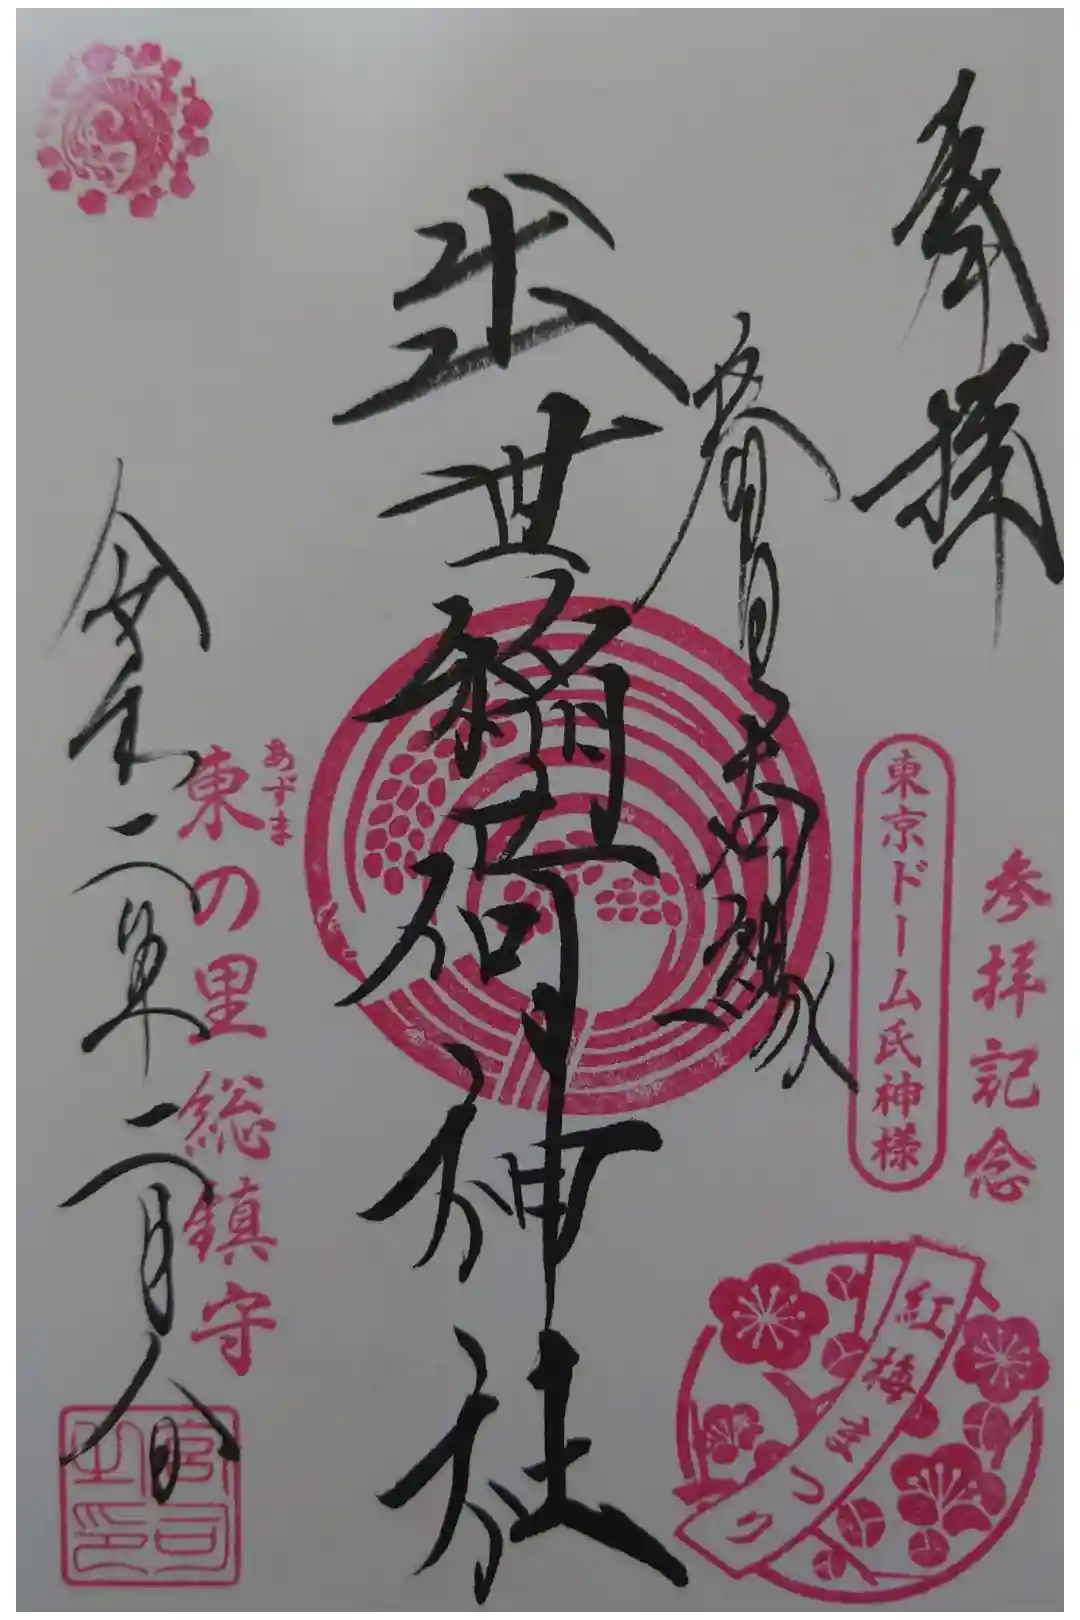 奉拝
参拝記念
東京ドーム氏神様
紅梅まつり
春日
出世稲荷神社
あずま
東の里総鎮守
令和二年二月
宮司之印